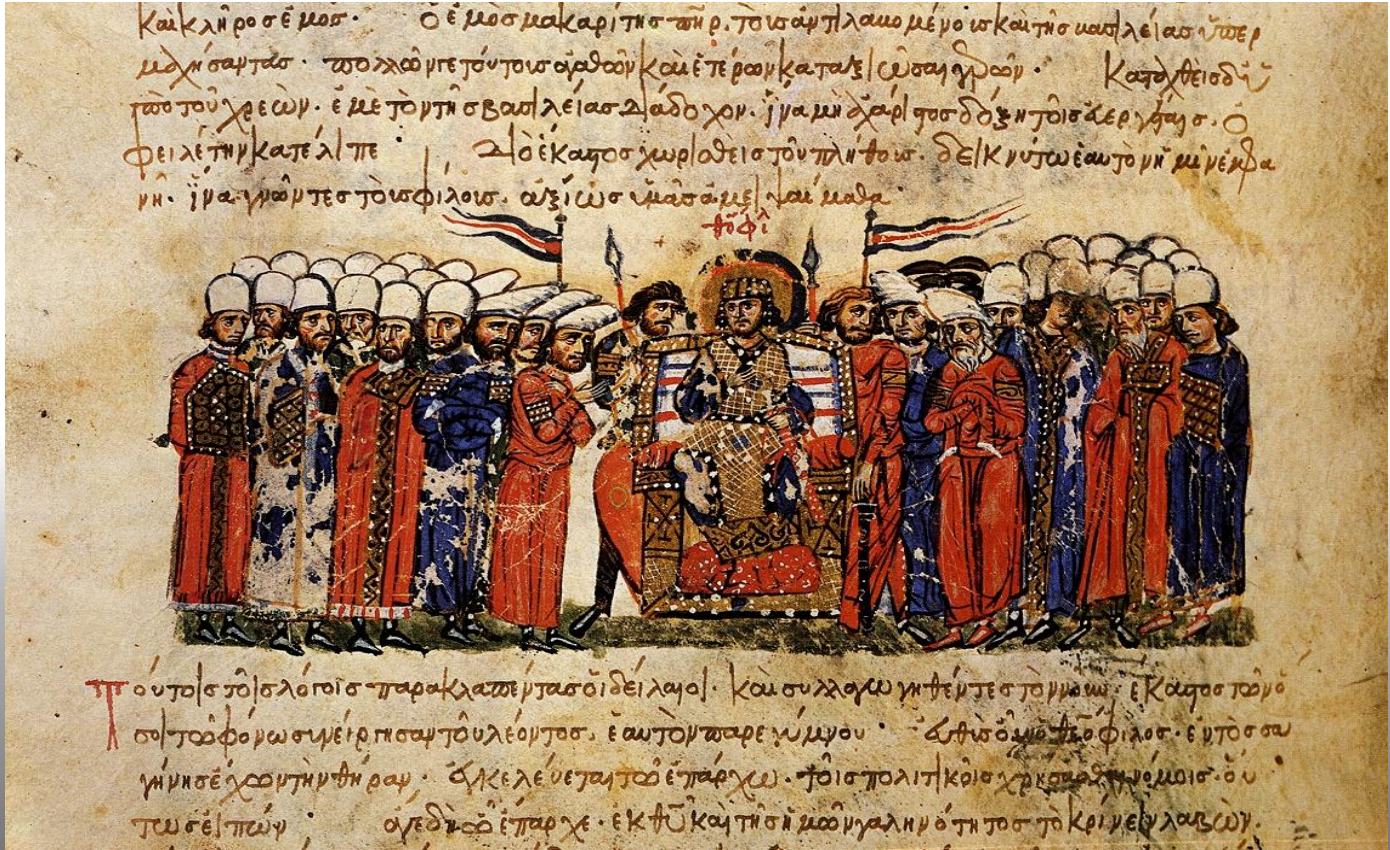 καὶ κλῆρος ἐμός. ὁ ἐμὸς μακαρίτης πηρ. τοῖς ἀντιλαβομένοις καὶ τῆς βασιλείας ὑπερ
μαχήσαντας. πολλῶν γε τούτοις ἀγαθῶν καὶ ἑτέρων καταξιῶσαι γερῶν. Καταχθεὶς δὲ
πρὸ τοῦ χρεών. ἐμὲ τὸν τῆς βασιλείας διάδοχον. ἵνα μὴ ἀχάριστος δόξη τοῖς εὐεργέταις. ὀ
φειλέτην κατέλιπε Διὸ ἕκαστος χωρισθεὶς τοῦ πλήθους. δεικνύτω ἑαυτὸν ἡμῖν ἐμφα
νῆ. ἵνα γνόντες τοὺς φίλους. ἀξίως ὑμᾶς ἀμειψαίμεθα
θεόφιλ
Τούτοις τοῖς λόγοις παρακλαπέντες οἱ δείλαιοι. καὶ συλλαγωγηθέντες τὸν νοῦν. ἕκαστος τῶν ὅ
σοι τῶ φόνω συνείργησαν τοῦ λέοντος. ἑαυτὸν παρεγύμνου θεόφιλος. ἐντὸς σα
γήνης ἔχων τὴν θήραν. ἐγκελεύεται τῶ ἐπάρχω. τοῖς πολιτικοῖς χρήσασθαι νόμοις. οὑ
τωσεὶπών ἄγε δὴ ὦ ἔπαρχε. ἐκ θυ καὶ τῆς ἡμῶν γαληνότητος τὸ κρίνειν λαβών.